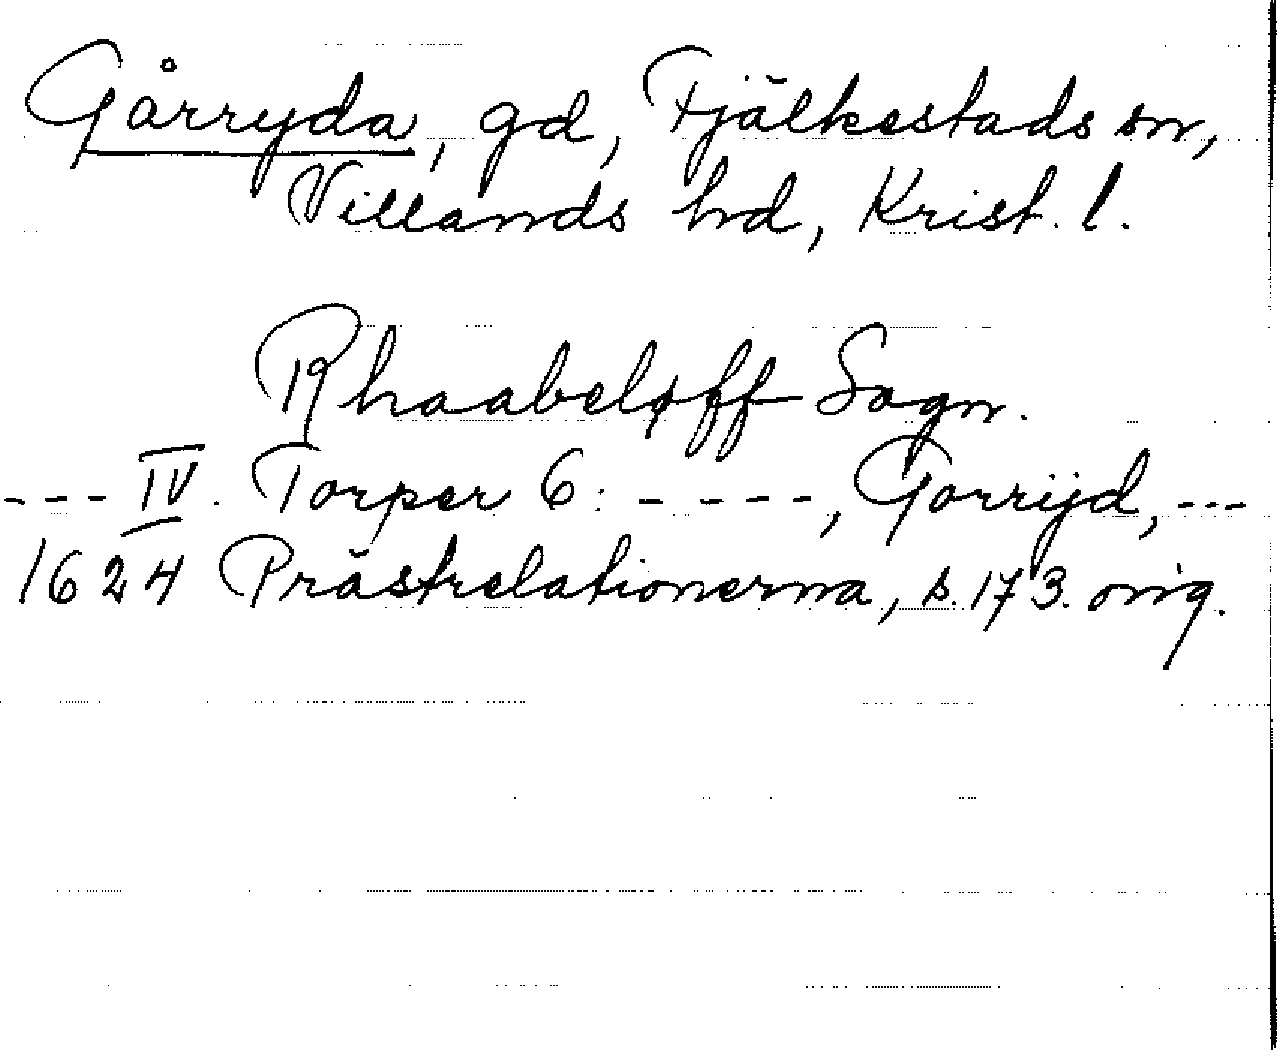 Gårryda, gd, Fjälkestads sn,
Villands hd, Krist. l.
Rhaabeløff Sogn.
--- IV. Torper 6: ----, Gorrijd, ---
1624 Prästrelationerna, s. 173. orig.